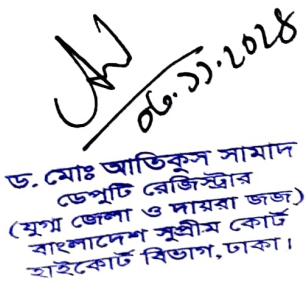 ০৬.১১.২০২৪
ড. মোঃ আতিকুস সামাদ
ডেপুটি রেজিস্ট্রার
(যুগ্ম জেলা ও দায়রা জজ)
বাংলাদেশ সুপ্রীম কোর্ট
হাইকোর্ট বিভাগ, ঢাকা।